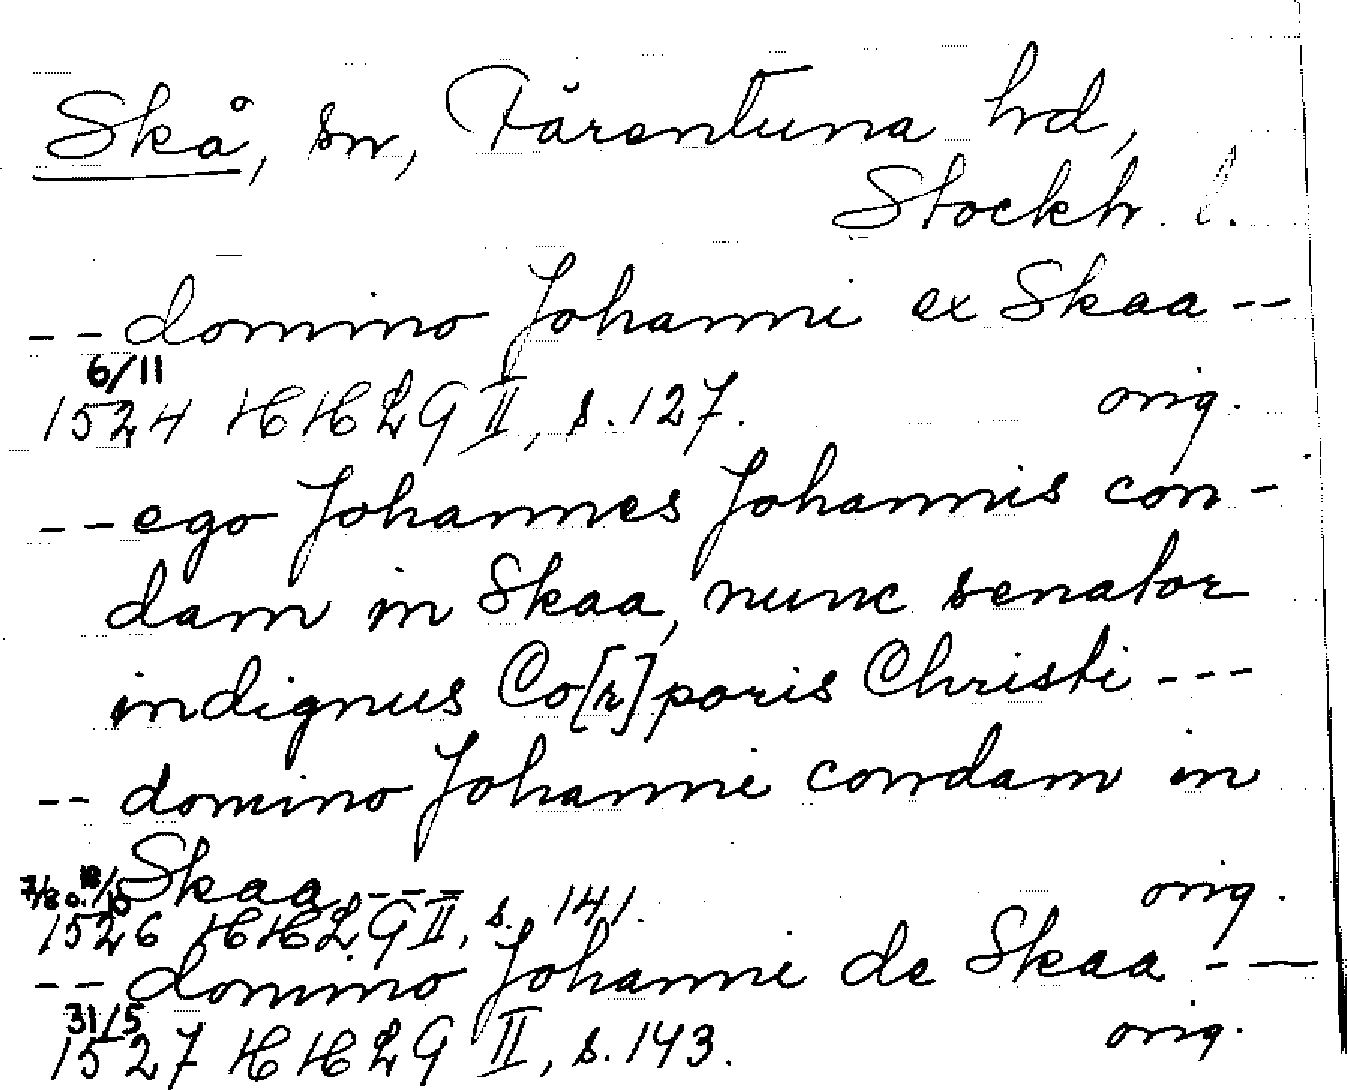 Skå, sn, Färentuna hd,
Stockh. l.
-- domino Johanni ex Skaa --
6/11
1524 HHLG II, s. 127. orig.
-- ego Johannes Johannis con-
dam in Skaa, nunc senator
indignus Co[r]poris Christi ---
-- domino Johanne condam in
Skaa --- orig.
7/8 o. 10/10
1526 HHLG II, s. 141.
-- domino Johanne de Skaa --
31/5
1527 HHLG II, s. 143. orig.